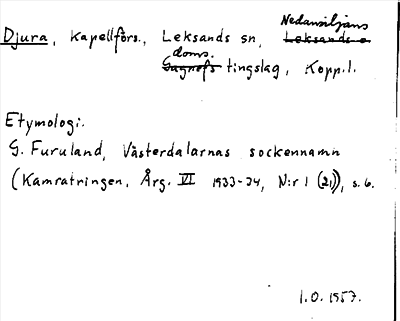 Djura, kapellförs., Leksands sn, Nedansiljans
doms. tingslag, Kopp.l.
Etymologi:
G. Furuland, Västerdalarnas sockennamn
(Kamratringen, Årg. VI 1933-34, N:r 1 (21)), s. 6.
I.O. 1957.